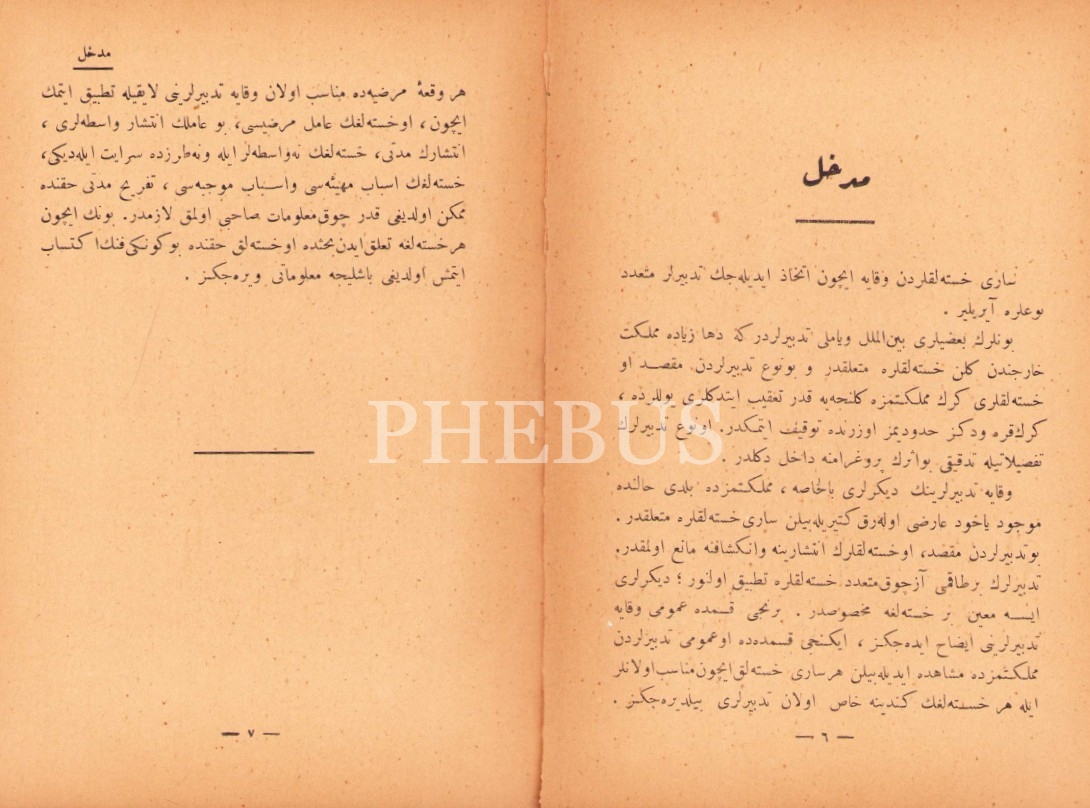 مدخل
ساری خسته‌لقلردن وقایه ایچون اتخاذ ایدیله‌جك تدبیرلر متعدد
نوعلره آیریلیر .
بونلرك بعضیلری بین‌الملل ویاملی تدبیرلردر که دها زیاده مملکت
خارجندن کلن خسته‌لقلره متعلقدر و بونوع تدبیرلردن مقصد او
خسته‌لقلری کرك مملکتمزه کلنجه‌یه قدر تعقیب ایتدکلری یوللرده ،
کرك قره ودکز حدودیمز اوزرنده توقیف ایتمکدر. اونوع تدبیرلرك
تفصیلاتیله تدقیقی بواثرك پروغرامنه داخل دکلدر .
وقایه تدبیرلرینك دیکرلری بالخاصه ، مملکتمزده بلدی حالنده
موجود یاخود عارضی اوله‌رق کتیریله‌بیلن ساری خسته‌لقلره متعلقدر .
بوتدبیرلردن مقصد، اوخسته‌لقلرك انتشارینه وانکشافنه مانع اولمقدر.
تدبیرلرك برطاقمی آزچوق متعدد خسته‌لقلره تطبیق اولنور ؛ دیکرلری
ایسه معین بر خسته‌لغه مخصوصدر . برنجی قسمده عمومی وقایه
تدبیرلرینی ایضاح ایده‌جکز ، ایکنجی قسمده‌ده اوعمومی تدبیرلردن
مملکتمزده مشاهده ایدیله‌بیلن هرساری خسته‌لق ایچون مناسب اولانلر
ایله هر خسته‌لغك کندینه خاص اولان تدبیرلری بیلدیره‌جکز .
— ٦ —
مدخل
هر وقعۀ مرضیه‌ده مناسب اولان وقایه تدبیرلرینی لایقیله تطبیق ایتمك
ایچون ، اوخسته‌لغك عامل مرضیسی، بو عاملك انتشار واسطه‌لری ،
انتشارك مدتی، خسته‌لغك نه‌واسطه‌لر ایله ونه‌طرزده سرایت ایله‌دیکی،
خسته‌لغك اسباب مهیئه‌سی واسباب موجبه‌سی ، تفریخ مدتی حقنده
ممکن اولدیغی قدر چوق معلومات صاحبی اولمق لازمدر. بونك ایچون
هر خسته‌لغه تعلق ایدن بحثده اوخسته‌لق حقنده بوکونکی فنك اکتساب
ایتمش اولدیغی باشلیجه معلوماتی ویره‌جکز .
— ٧ —
PHEBUS